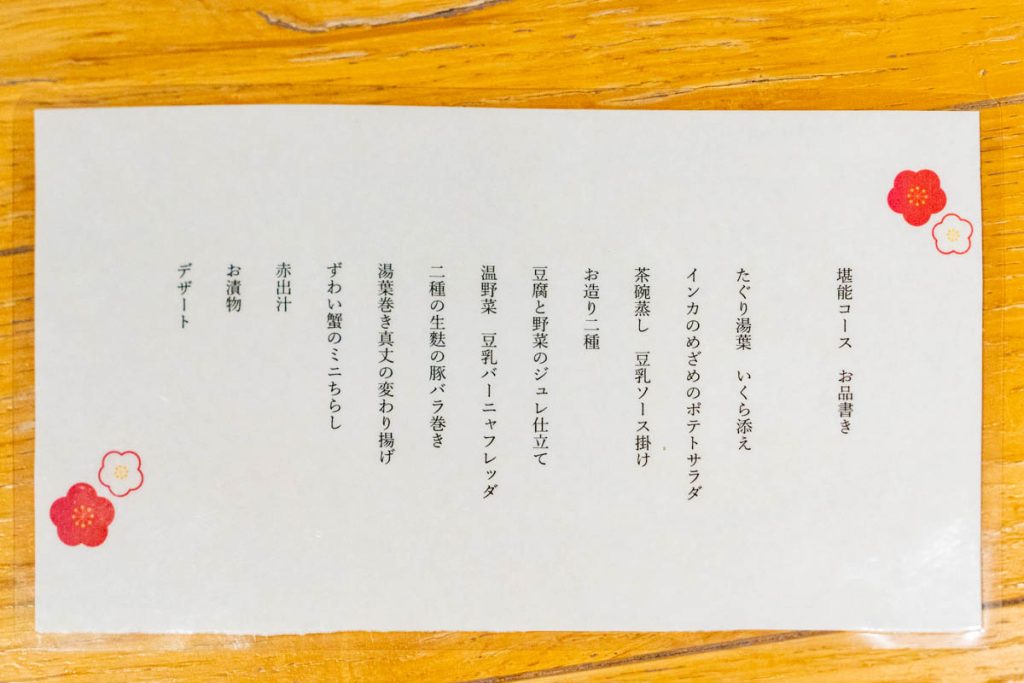 堪能コース　お品書き
たぐり湯葉　いくら添え
インカのめざめのポテトサラダ
茶碗蒸し　豆乳ソース掛け
お造り二種
豆腐と野菜のジュレ仕立て
温野菜　豆乳バーニャフレッダ
二種の生麩の豚バラ巻き
湯葉巻き真丈の変わり揚げ
ずわい蟹のミニちらし
赤出汁
お漬物
デザート